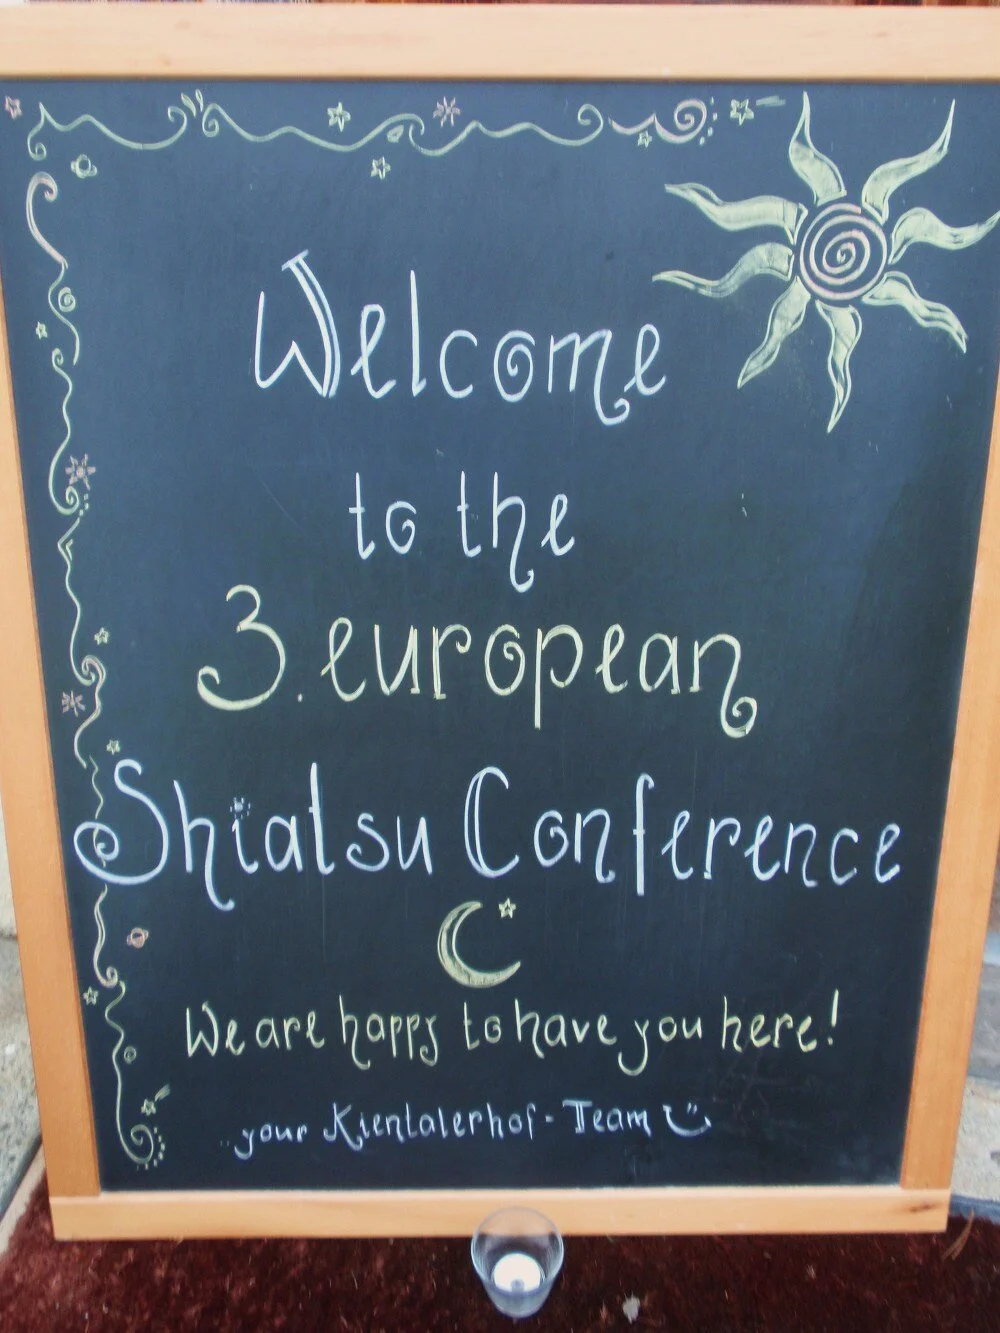 Welcome
to the
3. european
Shiatsu Conference
We are happy to have you here!
your Kientalerhof-Team